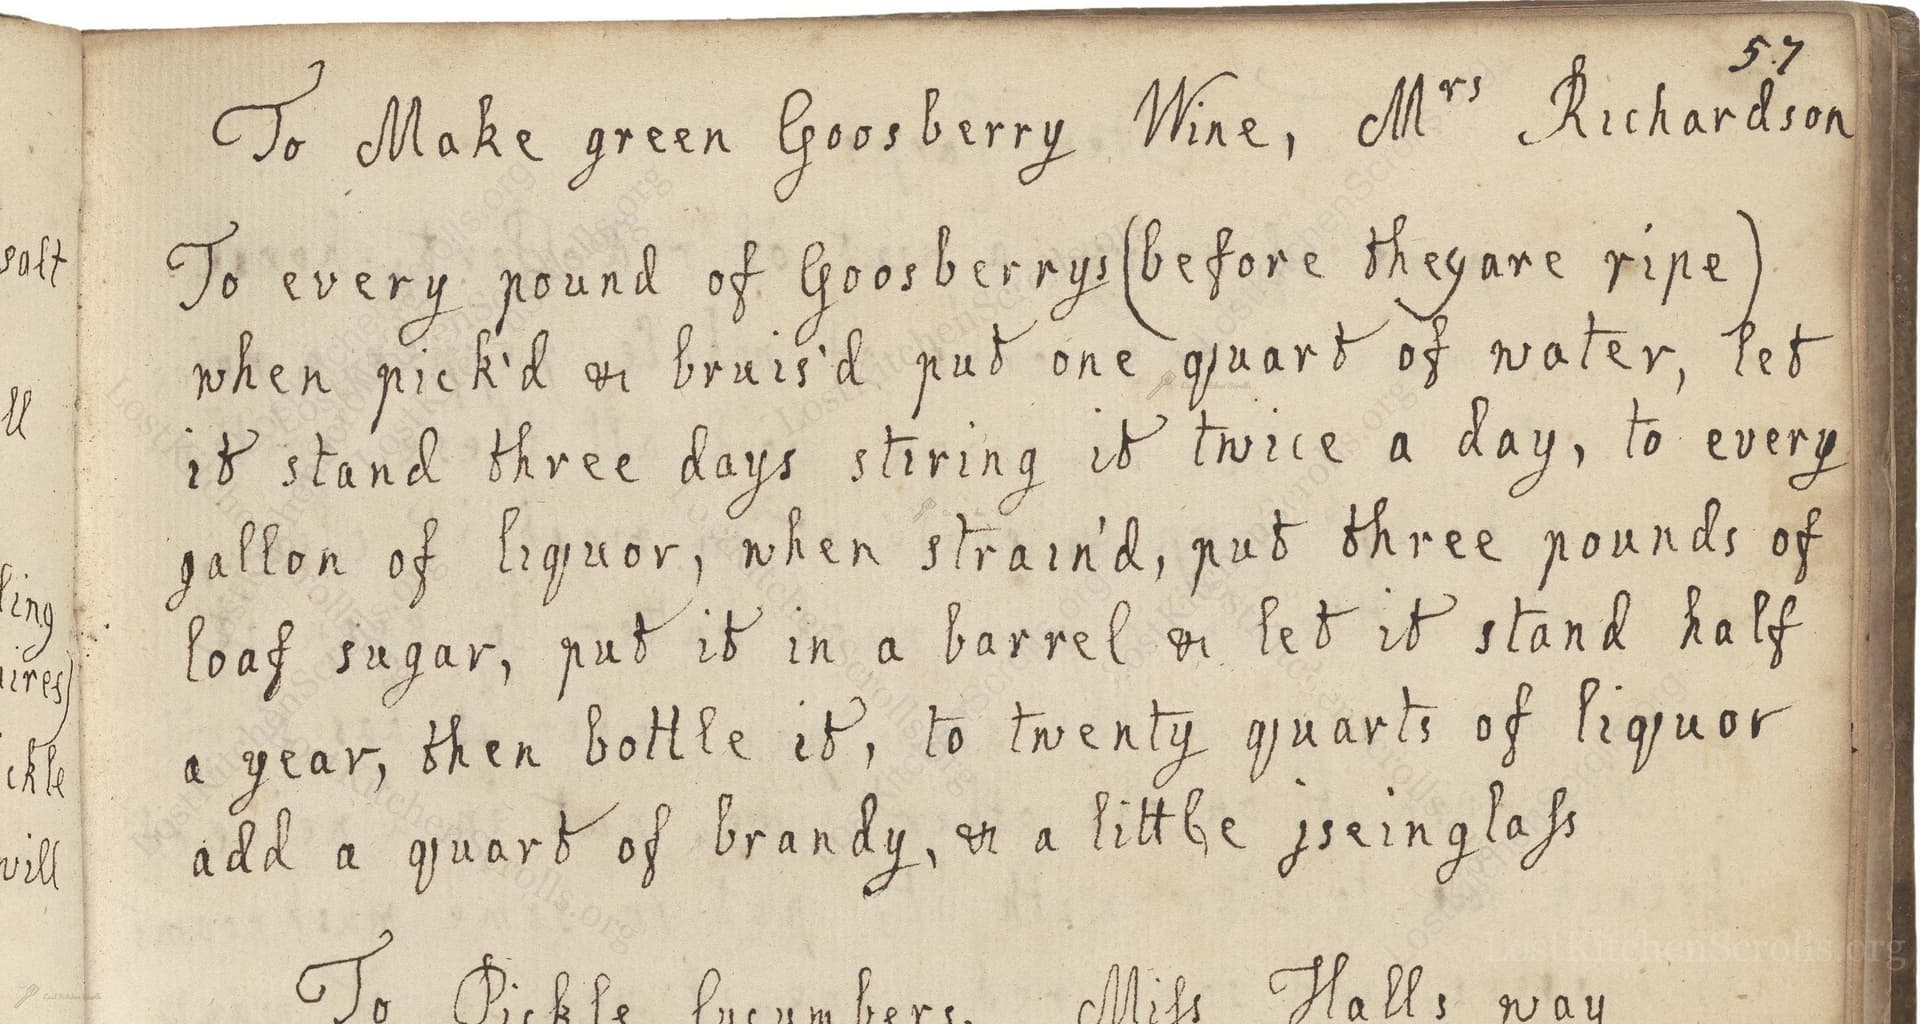 57
To Make green Goosberry Wine, Mrs Richardson
To every pound of Goosberrys (before they are ripe)
when pick'd & bruis'd put one quart of water, let
it stand three days stiring it twice a day, to every
gallon of liquor, when strain'd, put three pounds of
loaf sugar, put it in a barrel & let it stand half
a year, then bottle it, to twenty quarts of liquor
add a quart of brandy, & a little jseinglass
To Pickle Cucumbers. Miss Halls way
salt
ll
ling
ires)
ickle
will
LostKitchenScrolls.org